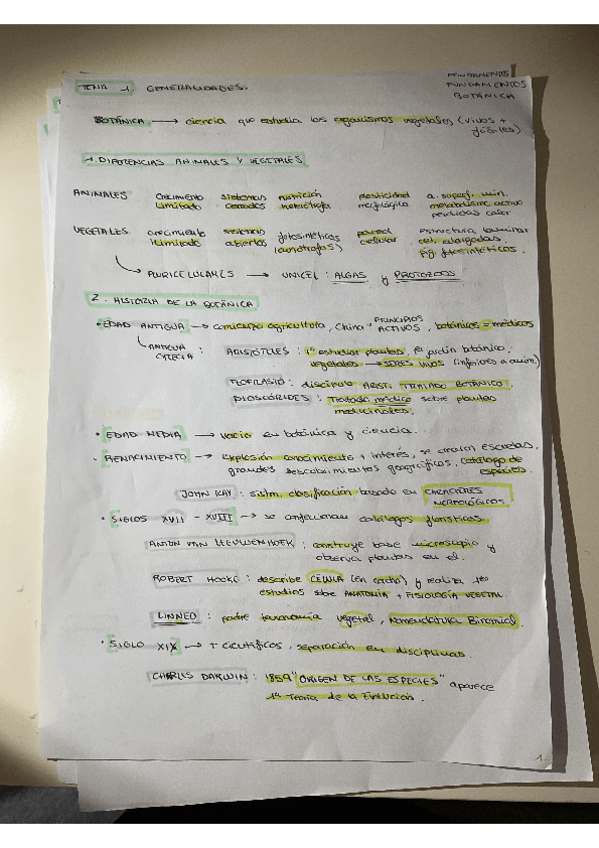 TEMA 1. GENERALIDADES.
FUNDAMENTOS
FUNDAMENTOS
BOTÁNICA
BOTÁNICA → ciencia que estudia los organismos vegetales (vivos +
fósiles)
1. DIFERENCIAS ANIMALES Y VEGETALES
ANIMALES crecimiento sistemas nutrición motricidad a. superf. min.
limitado cerrados heterótrofa morfológica metabolismo activo
perdidas calor
VEGETALES crecimiento sistemas fotosintéticos pared estructura laminar
ilimitado abiertos (autótrofos) celular cel. alargadas
pig. fotosintéticos.
PLURICELULARES → UNICEL: ALGAS y PROTOZOOS
2. HISTORIA DE LA BOTÁNICA
• EDAD ANTIGUA → comienzo agricultura, China → PRINCIPIOS
ACTIVOS, botánicos = médicos
ANTIGUA
GRECIA : ARISTÓTELES : 1º estudiar plantas, 1er jardín botánico,
vegetales → SERES VIVOS (inferiores a anim.)
TEOFRASTO : discípulo ARIST. TRATADO BOTÁNICO.
DIOSCÓRIDES : Tratado médico sobre plantas
medicinales.
• EDAD MEDIA → vacío en botánica y ciencia.
• RENACIMIENTO → explosión conocimiento + interés, se crearon escuelas,
grandes descubrimientos geográficos, catálogo de
especies.
JOHN RAY : sistm. clasificación basado en CARACTERES
MORFOLÓGICOS.
• SIGLOS XVII - XVIII → se confeccionan catálogos florísticos.
ANTON VAN LEEUWENHOEK : construye base microscopio y
observa plantas en él.
ROBERT HOOKE : describe CÉLULA (en corcho) y realiza 1os
estudios sbre ANATOMÍA + FISIOLOGÍA VEGETAL.
LINNEO : padre taxonomía vegetal, Nomenclatura Binomial.
• SIGLO XIX → + científicos, separación en disciplinas.
CHARLES DARWIN : 1859 "ORIGEN DE LAS ESPECIES" aparece
1ª Teoría de la Evolución.
1.